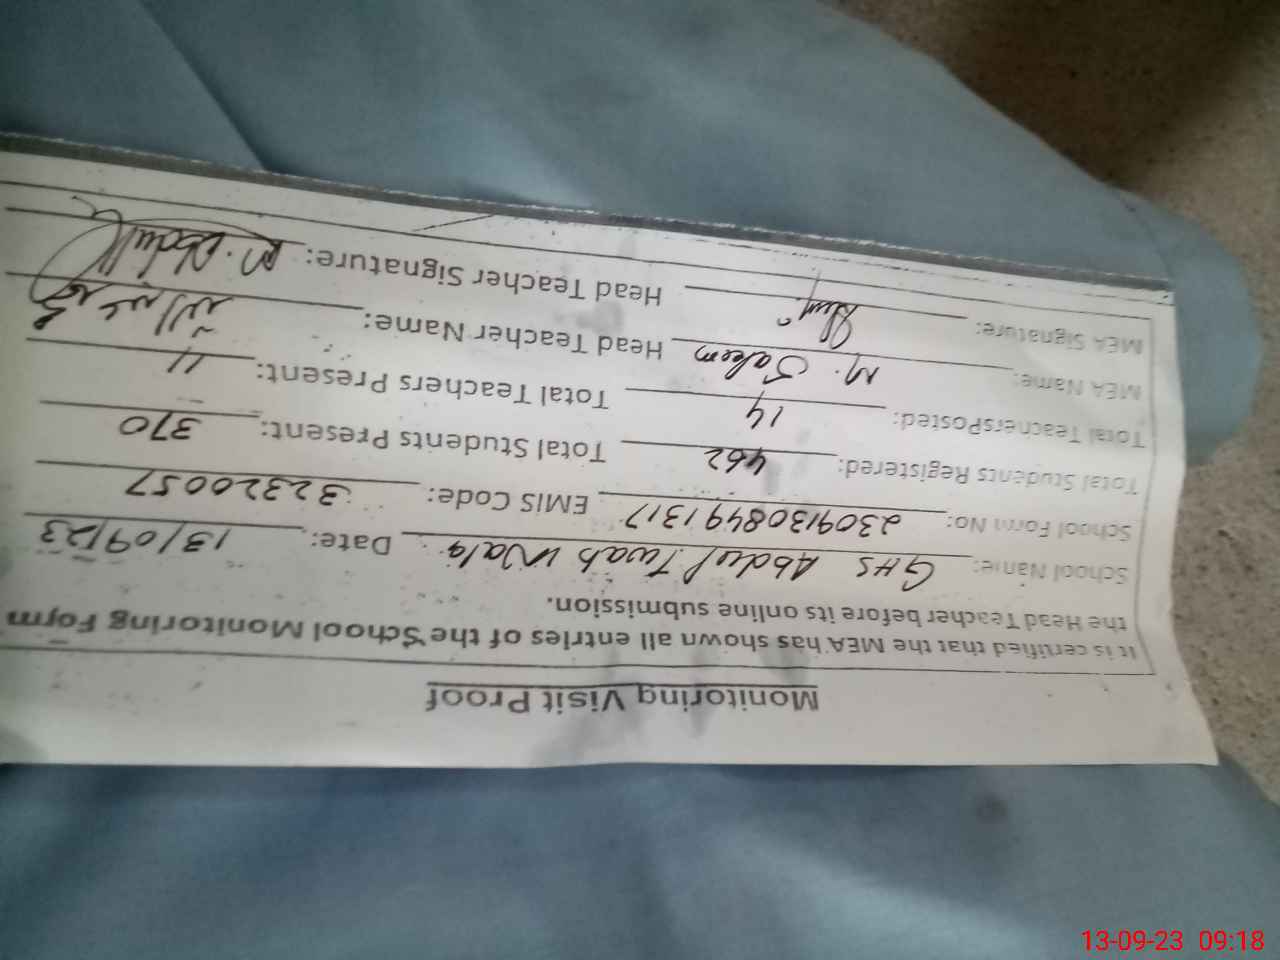 Monitoring Visit Proof
It is certified that the MEA has shown all entries of the School Monitoring Form
the Head Teacher before its online submission.
School Name: GHS Abdul Twab Wala Date: 13/09/23
School Form No: 2309130849 1317 EMIS Code: 32320057
Total Students Registered: 462 Total Students Present: 370
Total TeachersPosted: 14 Total Teachers Present: 11
MEA Name: M. Saleem Head Teacher Name:
MEA Signature: Head Teacher Signature: M. Abdull
13-09-23 09:18